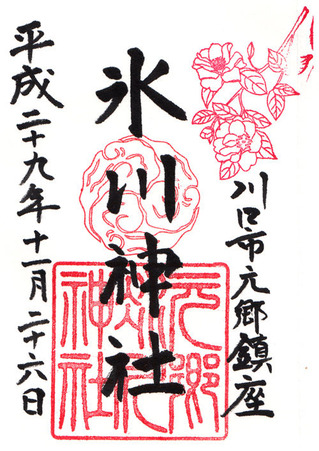 川口市元郷鎮座
氷川神社
平成二十九年十一月二十六日
元郷
氷川
神社